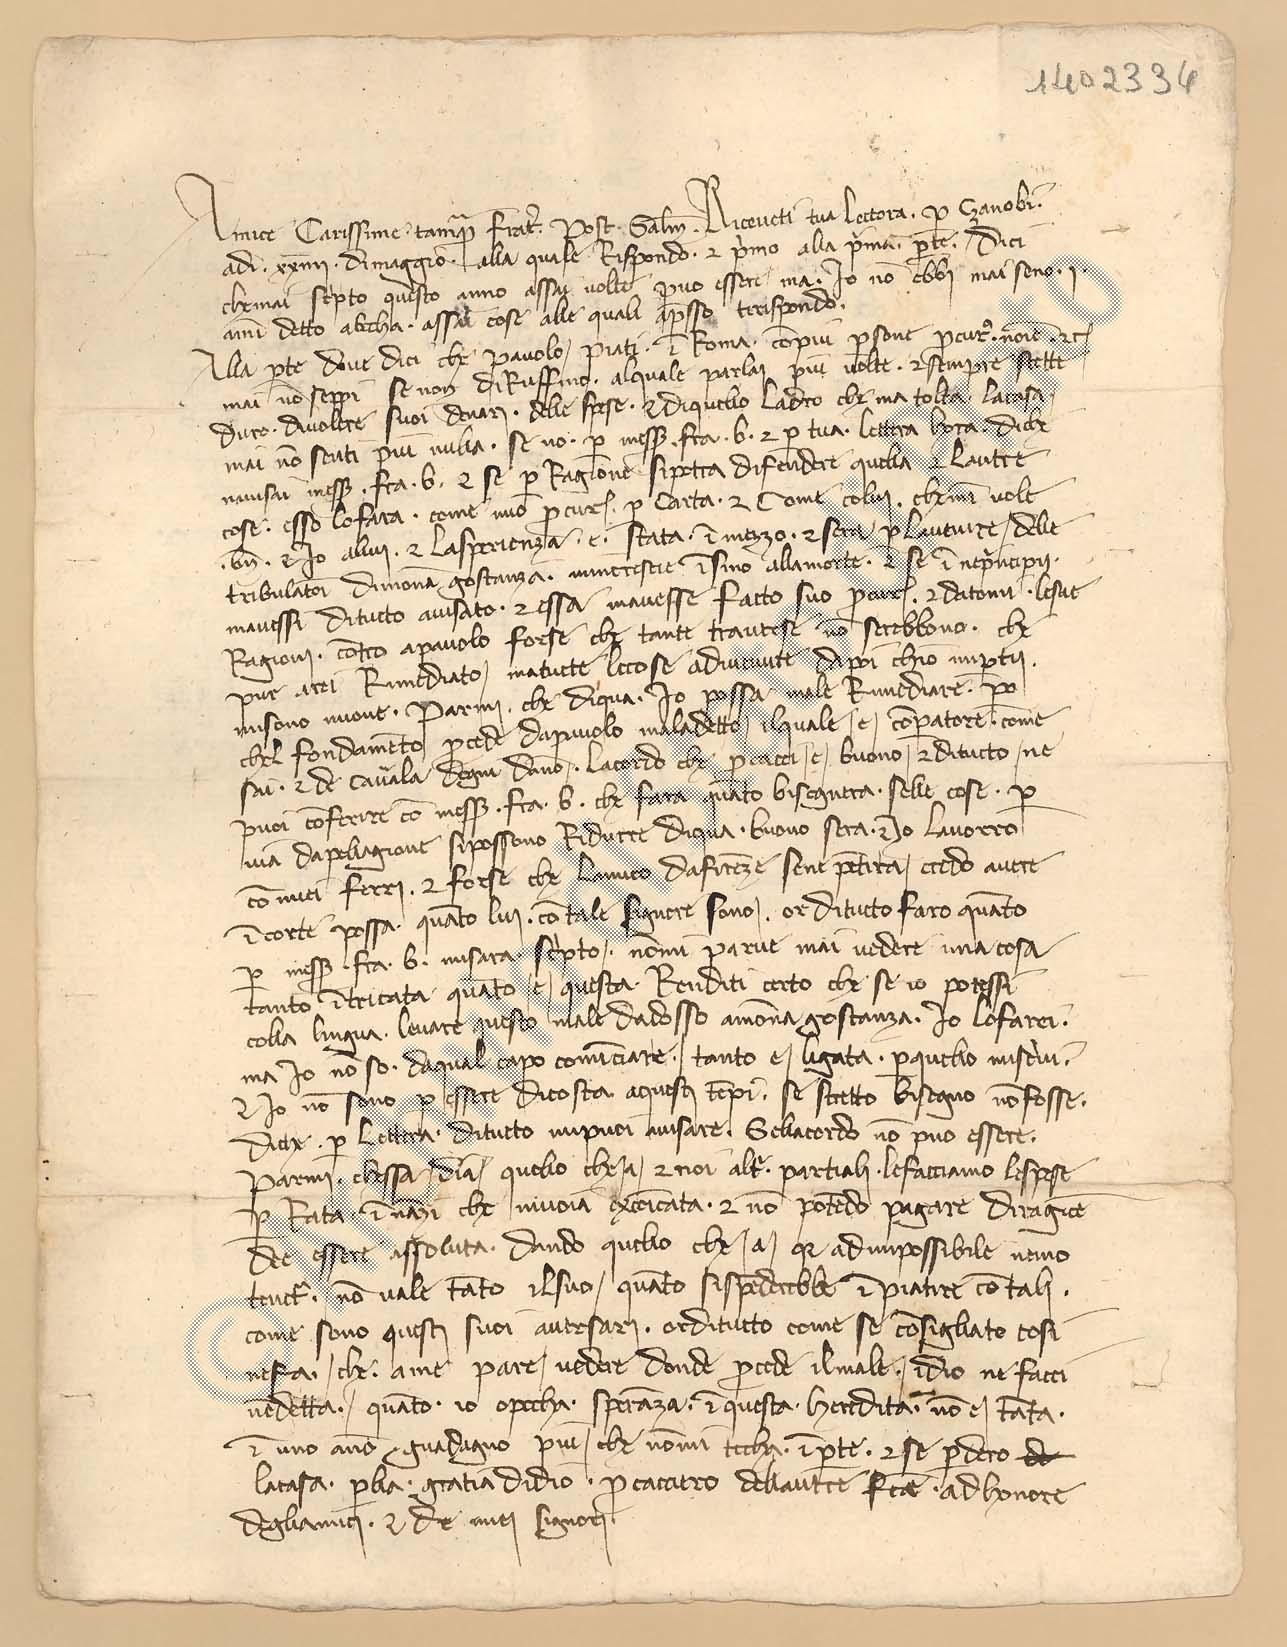 1402334
Amice Carissime tamq̃ Frat̃. Post. Salm̃. Riceveti tua lectora. p Zanobi.
adi. xxiiii. dimaggio. alla quale Rispondo. ⁊ p̃mo alla p̃ma pte. Dici
chemai sc̃pto questo anno assai volte puo essere ma. Io nõ ebbi mai seno. i.
detto abocha. assai cose alle quali ap̃sso terispondo.
Alla pte dove dici che pavolo piati. ĩ Roma. cõpiu psone
mai nõ seppi se non diRuffino. alquale parlai piu volte. ⁊ sempre stette
duro. divolere suoi denari. delle spese. ⁊ diquello ladro che ma tolta lacasa.
mai nõ senti piu nulla. se nõ. p mess̃. fra. b. ⁊ p tua. lettera hora. diche
navisai mess̃. fra. b. ⁊ se p Ragione sipotra difendere quella ⁊ laltre
cose. esso lofara. come mio pcur̃. p carta. ⁊ Come colui. chemi vole
.bñ. ⁊ Io allui. ⁊ lasperienza. e. stata. ĩ mezzo. ⁊ sera p lavenire delle
tribulatoi dimona gostanza. mincrescie ĩsino allamorte. ⁊ se ĩ nep̃ncipii.
mavessi ditucto avisato. ⁊ essa mavesse facto suo pcur̃. ⁊ datomi lesue
Ragioni. cõtro apavolo forse che tante traverse nõ serebbono. che
pur arei Rimediato, matucte lecose adivenute dapoi chio mipti.
misono nuove. Parmi. che diqua. Io possa male Rimediare. po
chel fondamẽto pcede dapavolo maladetto, ilquale e cõpatore. come
sai. ⁊ de cavala degni dano. lacordo che pcacci e buono, ⁊ ditucto ne
puoi cõferire cõ mess̃. fra. b. che fara quãto bisognera. selle cose. p
via dapellagione sipossono Riducere diqua. buono sera. ⁊ Io lavorro
cõ miei ferri. ⁊ forse che lamico dafirẽze sene pẽtira, credo avere
ĩ corte possa. quãto lui. cõ tale signore sono,. or ditucto faro quãto
p mess̃. fra. b. misara sc̃pto. nõmi parve mai vedere una cosa
tanto ĩtricata quãto e questa. Renditi certo che se io potessi
colla lingua. levare questo male dadosso amõna gostanza. Io lofarei.
ma Io nõ so. daqual capo comĩciare, tanto e ligata. pquello miscrivi.
⁊ Io nõ sono p essere dicosta aquesti tẽpi. se stretto bisogno nõ fosse.
diche. p Lettera. ditucto mipuoi avisare. Sellacordo nõ puo essere.
Parmi. chessa dia quello che a ⁊ noi alt̃. partiali. lefacciamo lespese
p Rata. ĩ nãzi che muoia excõicata. ⁊ nõ potẽdo pagare diragiõe
dee essere assoluta. dando quello che a q̃ adimpossibile nemo
tenet̃. nõ vale tãto ilsuo, quãto sispẽderebbe ĩ piatire cõ tali.
come sono questi suoi aversari. orditucto come se cõsigliato cosi
nefa. che. ame pare vedere donde pcede ilmale. idio ne facci
vẽdetta. quãto. io opocha. sperãza. ĩ questa. heredita. nõ e tãta.
ĩ uno anõ guadagno piu che nõmi toccha. ĩ pte. ⁊ se pdero de
lacasa. plla. gratia didio. pcacciero dellaltre ad honore
degliamici. ⁊ de miei signori.